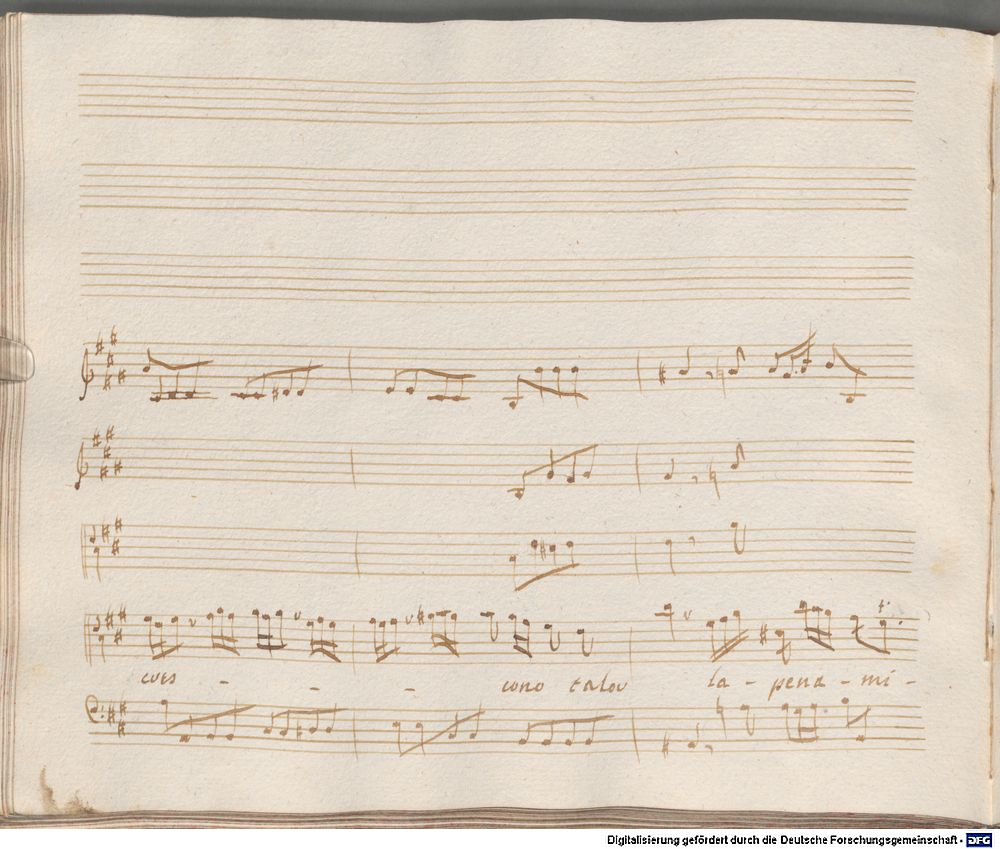 cres - - - cono talor la - pena - mi -
Digitalisierung gefördert durch die Deutsche Forschungsgemeinschaft - DFG